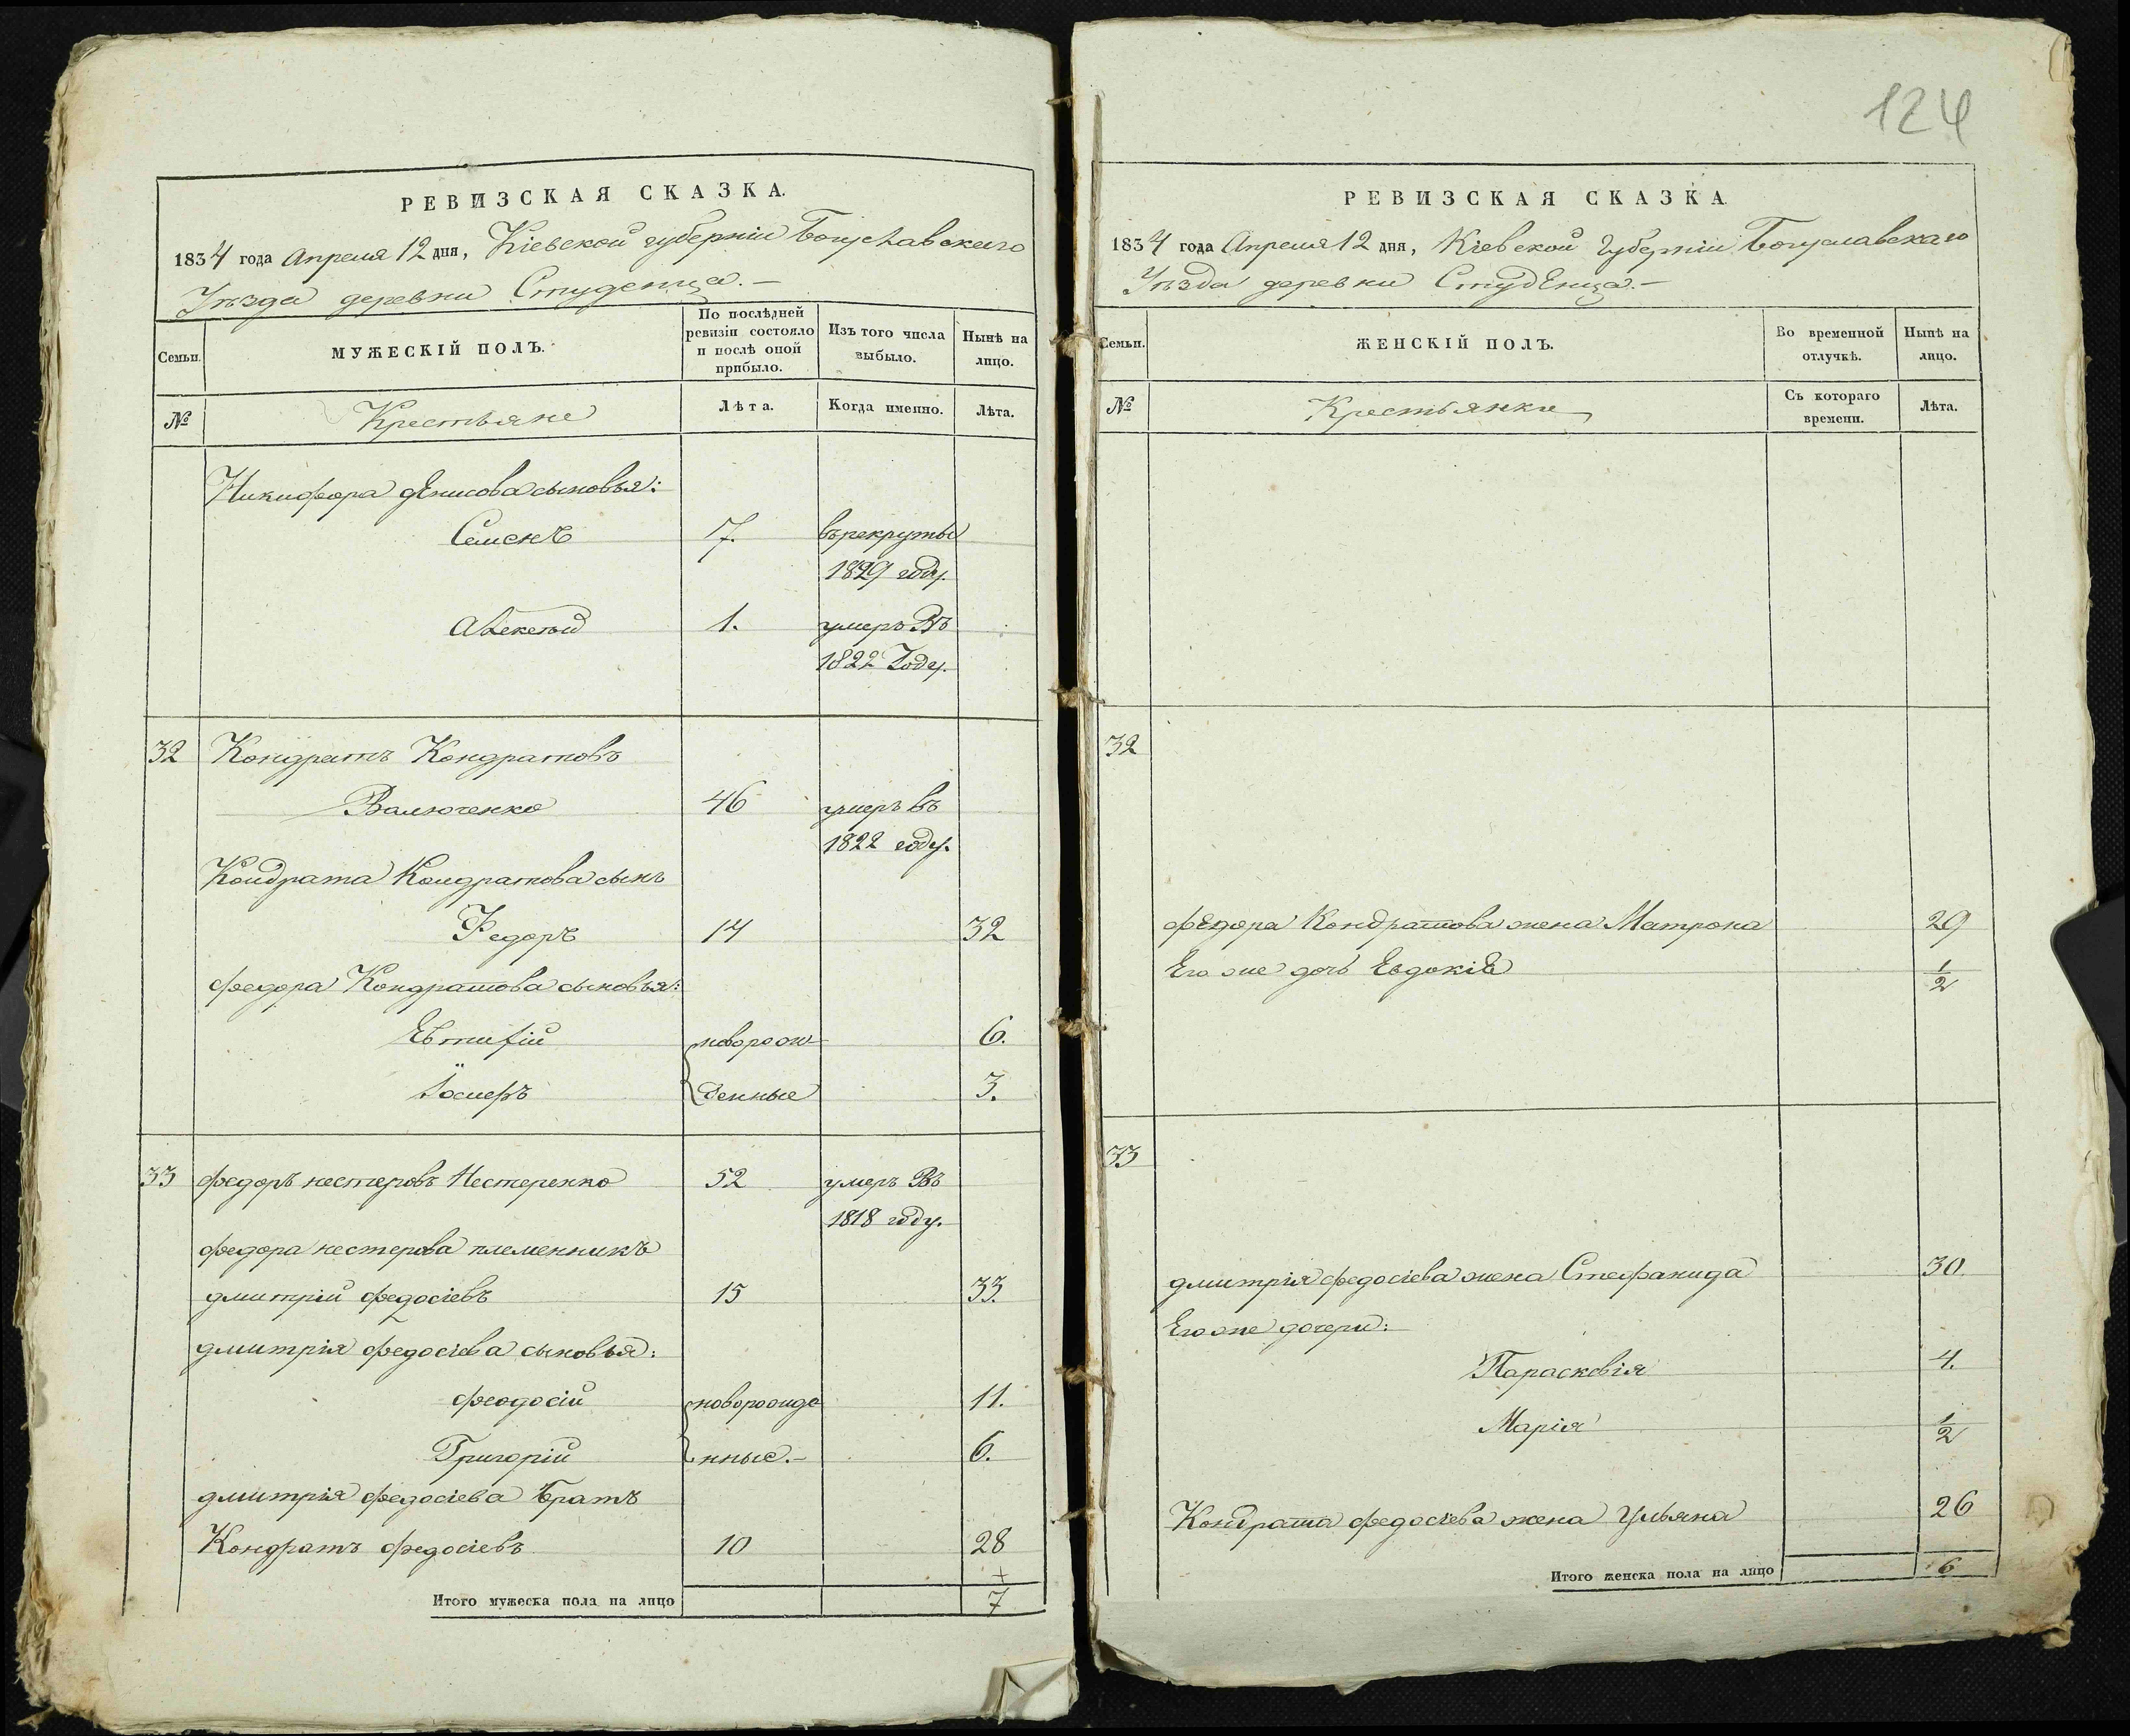 124
РЕВИЗСКАЯ СКАЗКА.
1834 года Апреля 12 дня, Кіевской губерніи Богуславскаго
Уѣзда деревни Студенца.-
Семьи.
МУЖЕСКІЙ ПОЛЪ.
По послѣдней
ревизіи состояло
и послѣ оной
прибыло.
Изъ того числа
выбыло.
Нынѣ на
лицо.
№
Крестьяне
Лѣта.
Когда именно.
Лѣта.
Никифора денисова сыновья:
Семенъ 7. въ рекруты
1829 году.
Алексѣй 1. умеръ Въ
1822 Году.
32 Кондратъ Кондратовъ
Валюченко 46 умеръ въ
1822 году.
Кондрата Кондратова сынъ
Федоръ 14 32
федора Кондратова сыновья:
Евтифій новорож- 6.
Іосифъ денные 3.
33 федоръ нестеровъ Нестеренко 52 умеръ Въ
1818 году.
федора нестерова племенникъ
дмитрій федосіевъ 15 33.
дмитрія федосіева сыновья:
феодосій новорожде 11.
Григорій нные.- 6.
дмитрія федосіева Братъ
Кондратъ федосіевъ 10 28
Итого мужеска пола на лицо 7
РЕВИЗСКАЯ СКАЗКА
1834 года Апреля 12 дня, Кіевской Губерніи Богуславскаго
Уѣзда деревни Студенца.-
Семьи.
ЖЕНСКІЙ ПОЛЪ.
Во временной
отлучкѣ.
Нынѣ на
лицо.
№
Крестьянки
Съ котораго
времени.
Лѣта.
32
федора Кондратова жена Матрона 29
Его же дочь Евдокіе 1/2
33
дмитрія федосіева жена Стефанида 30.
Его же дочери:
Парасковія 4.
Марія 1/2
Кондрата федосіева жена Ульяна 26
Итого женска пола на лицо 6